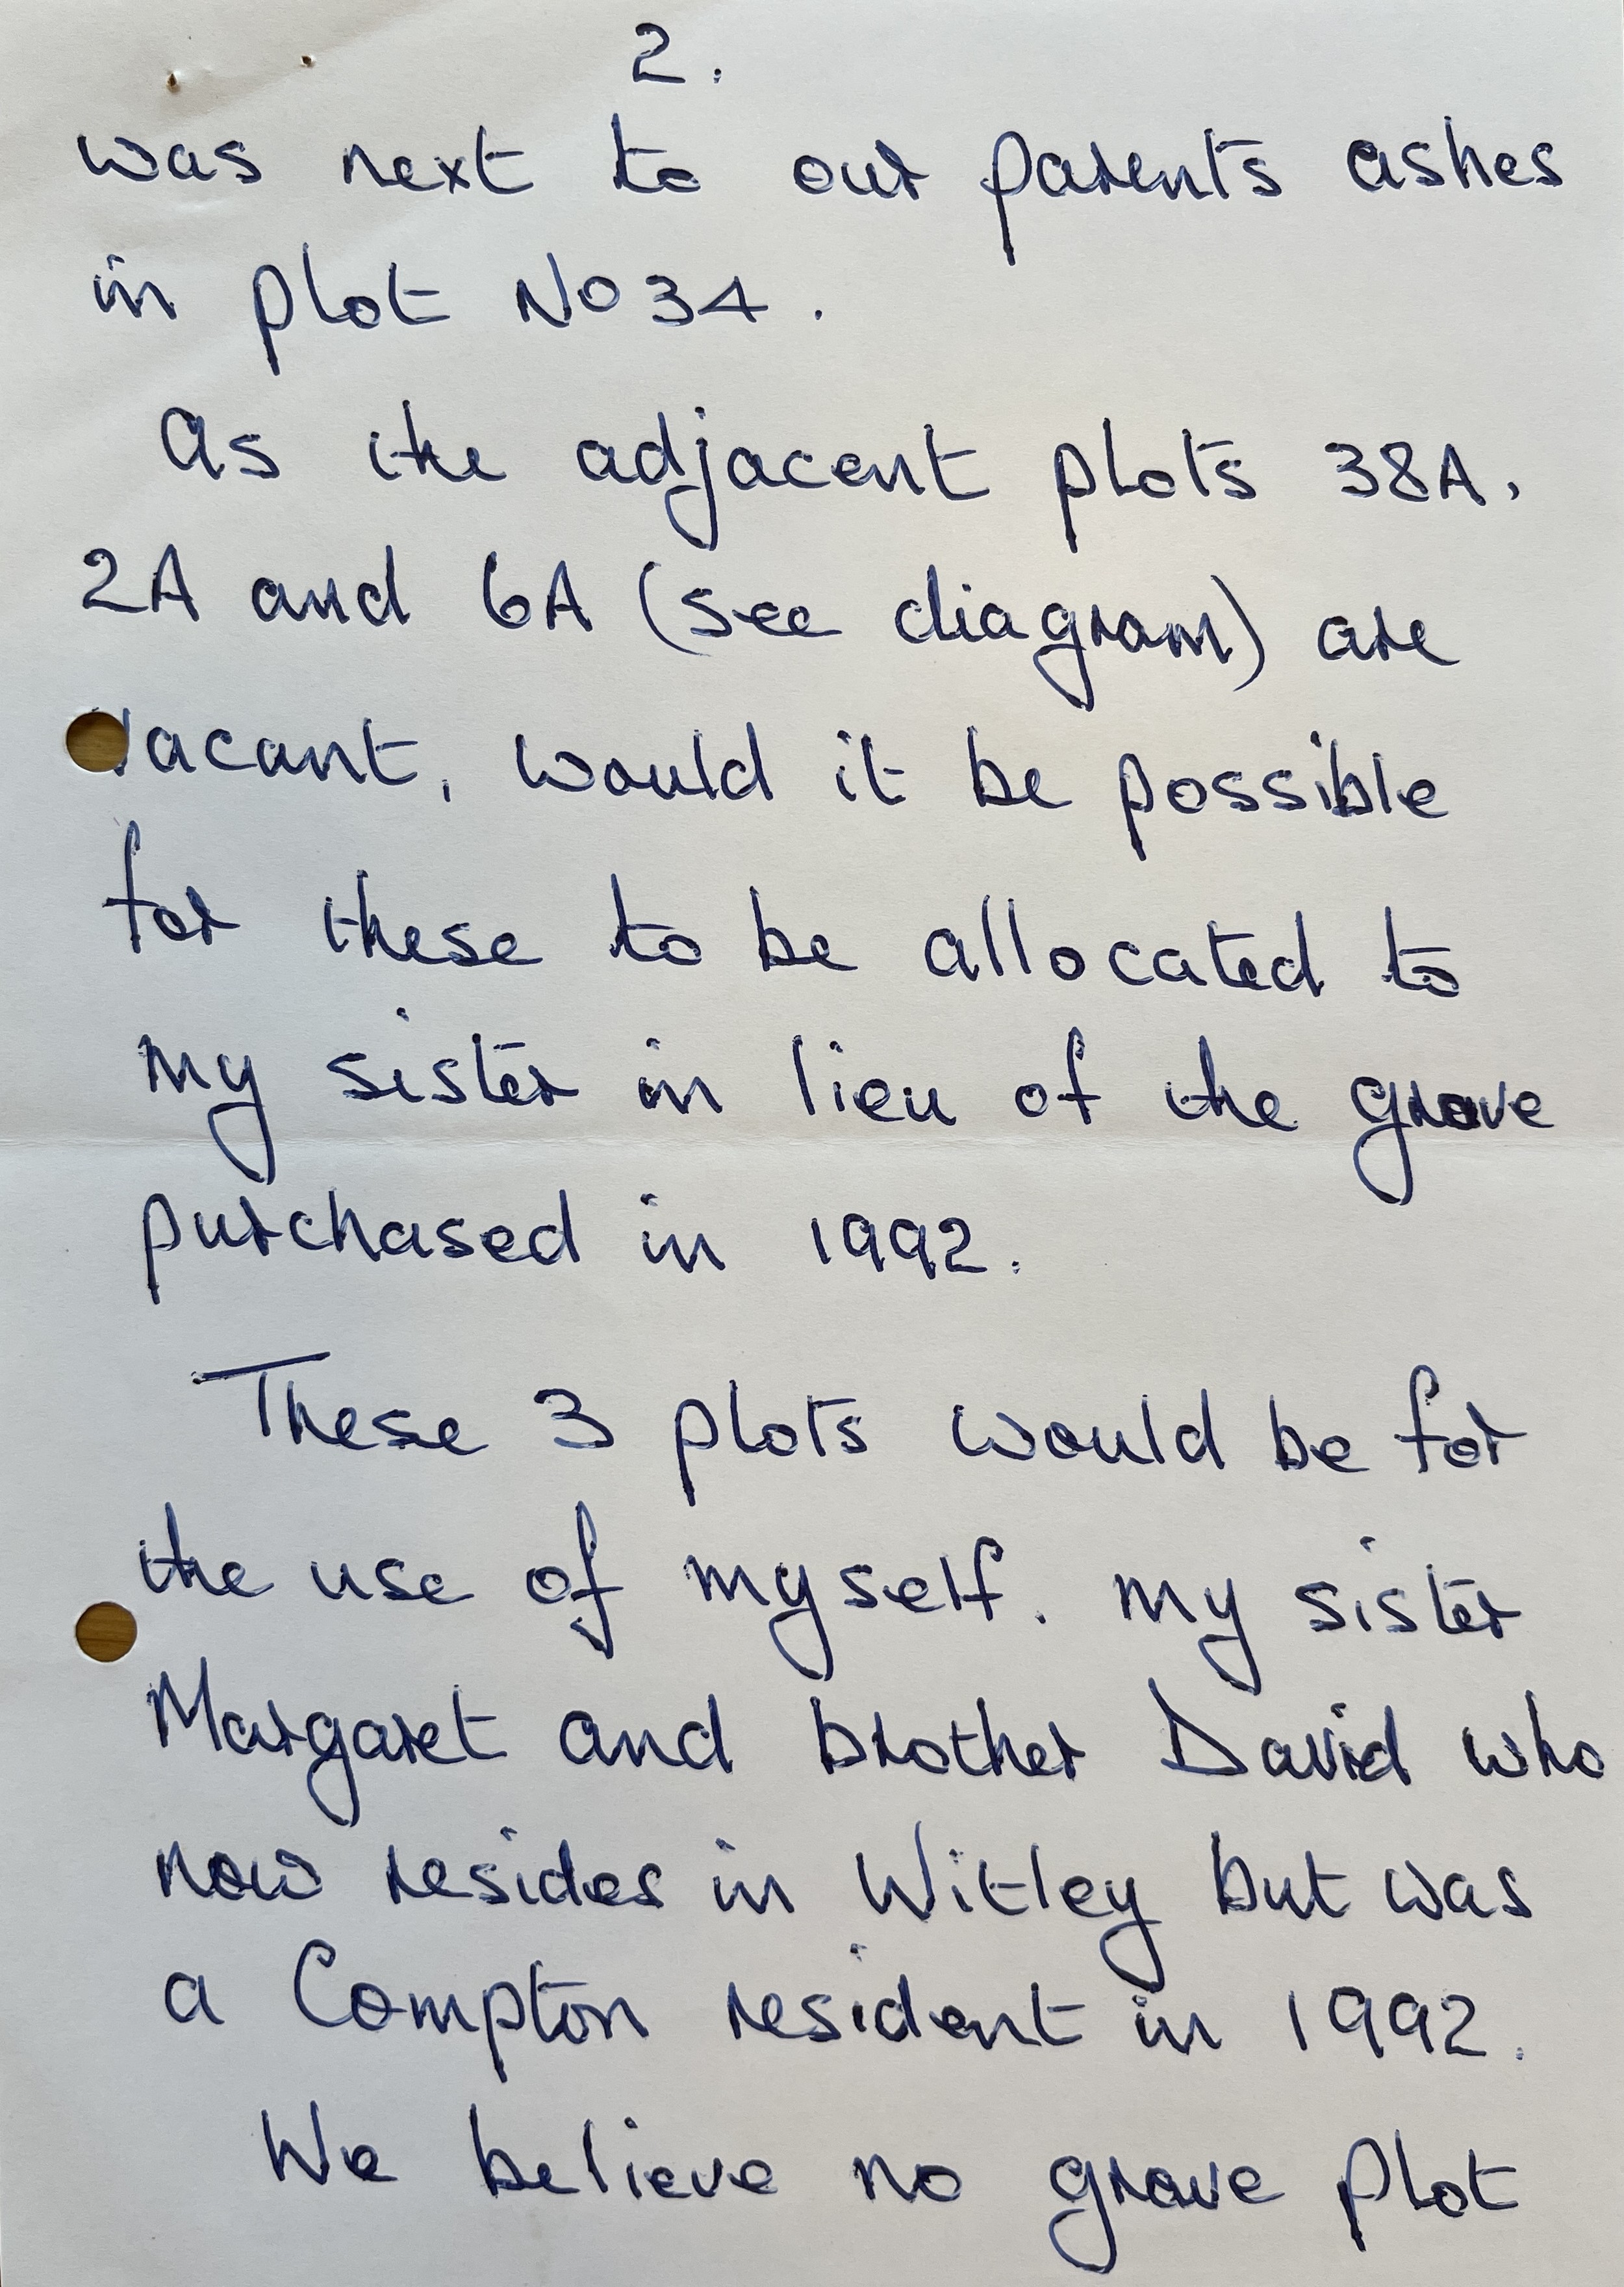 2.
was next to our parents ashes
in plot No 34.
As the adjacent plots 38A,
2A and 6A (see diagram) are
vacant, would it be possible
for these to be allocated to
my sister in lieu of the grave
purchased in 1992.
These 3 plots would be for
the use of myself. my sister
Margaret and brother David who
now resides in Witley but was
a Compton resident in 1992.
We believe no grave plot